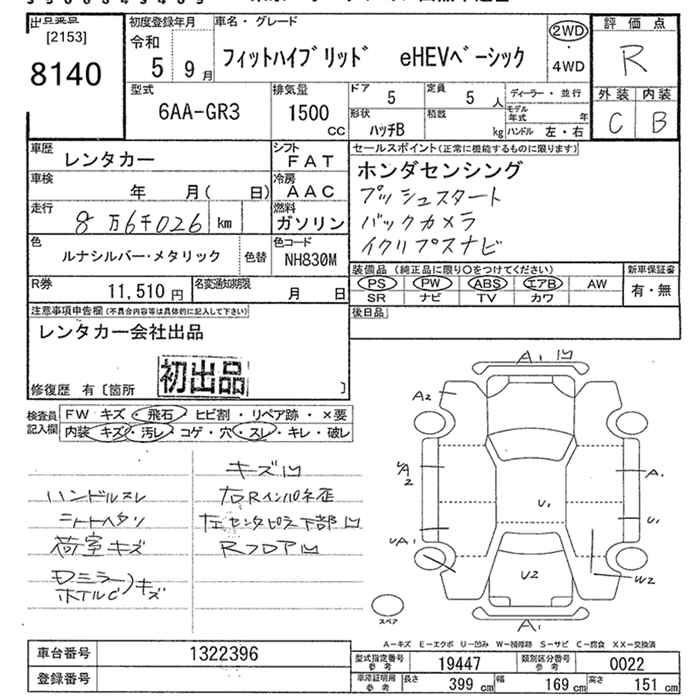 出品番号
[2153]
8140
初度登録年月
令和
5 9月
車名・グレード
フィットハイブリッド eHEVベーシック
2WD
・
4WD
評価点
R
外装 内装
C B
型式
6AA-GR3
排気量
1500
CC
ドア 5
定員 5 人
形状
ハッチB
積載
kg
ディーラー・並行
モデル
年式 年
ハンドル 左・右
車歴
レンタカー
シフト
FAT
車検
年 月( 日)
冷房
AAC
走行
8万6千026 km
燃料
ガソリン
色
ルナシルバー・メタリック
色替
色コード
NH830M
R券
11,510 円
名変通知期限
月 日
セールスポイント(正常に機能するものに限ります)
ホンダセンシング
プッシュスタート
バックカメラ
イクリプスナビ
装備品 (純正品に限り○をつけてください)
PS PW ABS エアB AW
SR ナビ TV カワ
新車保証書
有・無
後日品
注意事項申告欄(不具合内容等は具体的に記入して下さい)
レンタカー会社出品
初出品
修復歴 有〔箇所 〕
検査員
記入欄
FW キズ・飛石・ヒビ割・リペア跡・×要
内装 キズ・汚レ・コゲ・穴・スレ・キレ・破レ
ハンドルスレ
シートヘタリ
荷室キズ
ドミラー
ホイルC
キズ
キズ凹
右Rインパネ歪
左センタピラ下部凹
Rフロア凹
A1 凹
A2
A2
UA1
A1
U1
U1
U2
W2
A1
スペア
A-キズ E-エクボ U-凹み W-補修跡 S-サビ C-腐食 XX-交換済
車台番号
1322396
登録番号
型式指定番号
参考
19447
類別区分番号
参考
0022
車庫証明用
参考
長さ
399 cm
幅
169 cm
高さ
151 cm